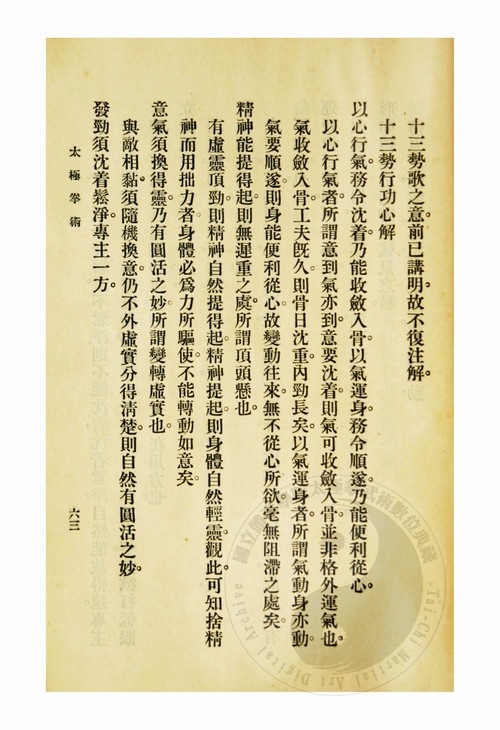 十三勢歌之意。前已講明。故不復注解。
十三勢行功心解
以心行氣。務令沈着。乃能收斂入骨。以氣運身。務令順遂。乃能便利從心。
以心行氣者。所謂意到氣亦到。意要沈着。則氣可收斂入骨。並非格外運氣也。
氣收斂入骨。工夫旣久。則骨日沈重。內勁長矣。以氣運身者。所謂氣動身亦動。
氣要順遂。則身能便利從心。故變動往來。無不從心所欲。毫無阻滯之處矣。
精神能提得起。則無遲重之處。所謂頂頭懸也。
有虛靈頂勁。則精神自然提得起。精神提起。則身體自然輕靈。觀此可知捨精
神而用拙力者。身體必爲力所驅使。不能轉動如意矣。
意氣須換得靈。乃有圓活之妙。所謂變轉虛實也。
與敵相黏。須隨機換意。仍不外虛實分得淸楚。則自然有圓活之妙。
發勁須沈着鬆淨。專主一方。
太極拳術
六三
國立
術數位典藏
Tai-Chi Martial Art Digital Archive